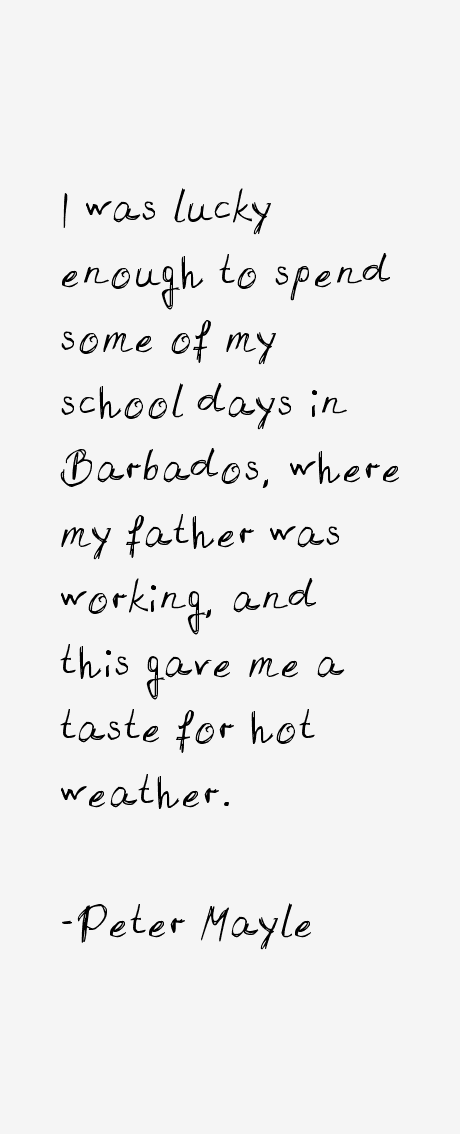 I was lucky
enough to spend
some of my
school days in
Barbados, where
my father was
working, and
this gave me a
taste for hot
weather.
-Peter Mayle